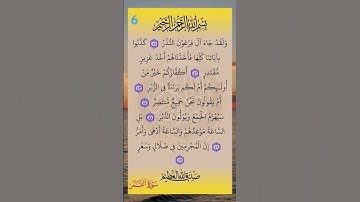 6
بسم الله الرحمن الرحيم
وَلَقَدْ جَاءَ آلَ فِرْعَوْنَ النُّذُرُ ۝ كَذَّبُوا
بِآيَاتِنَا كُلِّهَا فَأَخَذْنَاهُمْ أَخْذَ عَزِيزٍ
مُقْتَدِرٍ ۝ أَكُفَّارُكُمْ خَيْرٌ مِنْ
أُولَئِكُمْ أَمْ لَكُمْ بَرَاءَةٌ فِي الزُّبُرِ ۝
أَمْ يَقُولُونَ نَحْنُ جَمِيعٌ مُنْتَصِرٌ ۝
سَيُهْزَمُ الْجَمْعُ وَيُوَلُّونَ الدُّبُرَ ۝ بَلِ
السَّاعَةُ مَوْعِدُهُمْ وَالسَّاعَةُ أَدْهَى وَأَمَرُّ
۝ إِنَّ الْمُجْرِمِينَ فِي ضَلَالٍ وَسُعُرٍ
۝
صدق الله العظيم
سورة القمر